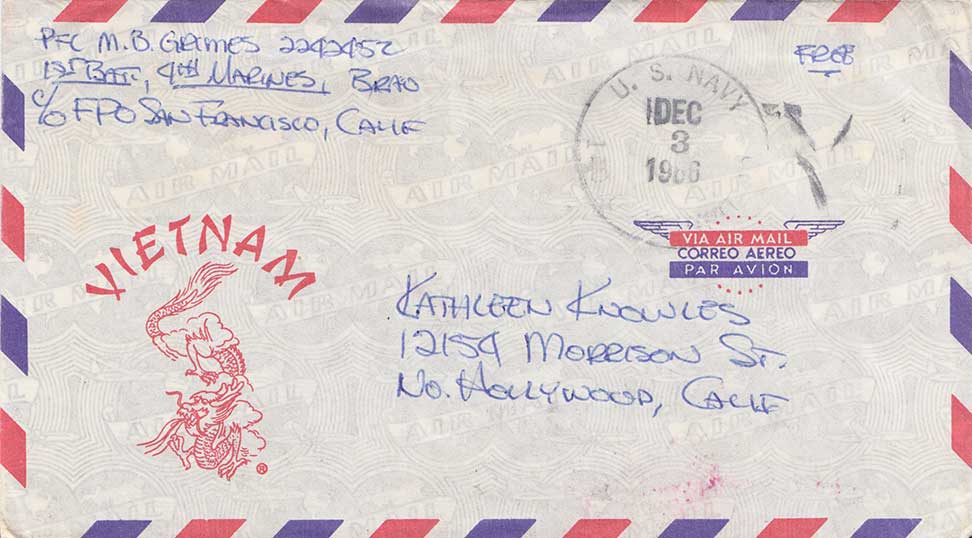 PFC M.B. GRIMES 2242452
1ST BATT, 4TH MARINES, BRAVO
C/O FPO SAN FRANCISCO, CALIF
FREE
U. S. NAVY
DEC
3
1966
VIETNAM
®
VIA AIR MAIL
CORREO AEREO
PAR AVION
KATHLEEN KNOWLES
12154 MORRISON ST.
NO. HOLLYWOOD, CALIF
AIR MAIL
AIR MAIL
AIR MAIL
AIR MAIL